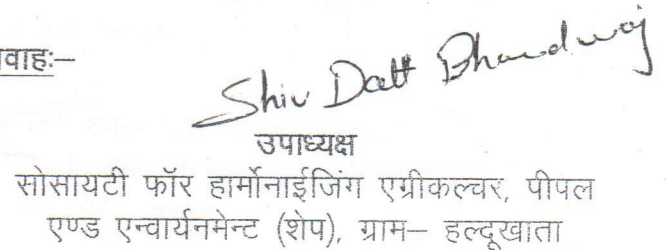 वाहः–
Shiv Datt Bhardwaj
उपाध्यक्ष
सोसायटी फॉर हार्मोनाईजिंग एग्रीकल्चर, पीपल
एण्ड एन्वार्यनमेन्ट (शेप), ग्राम– हल्दूखाता